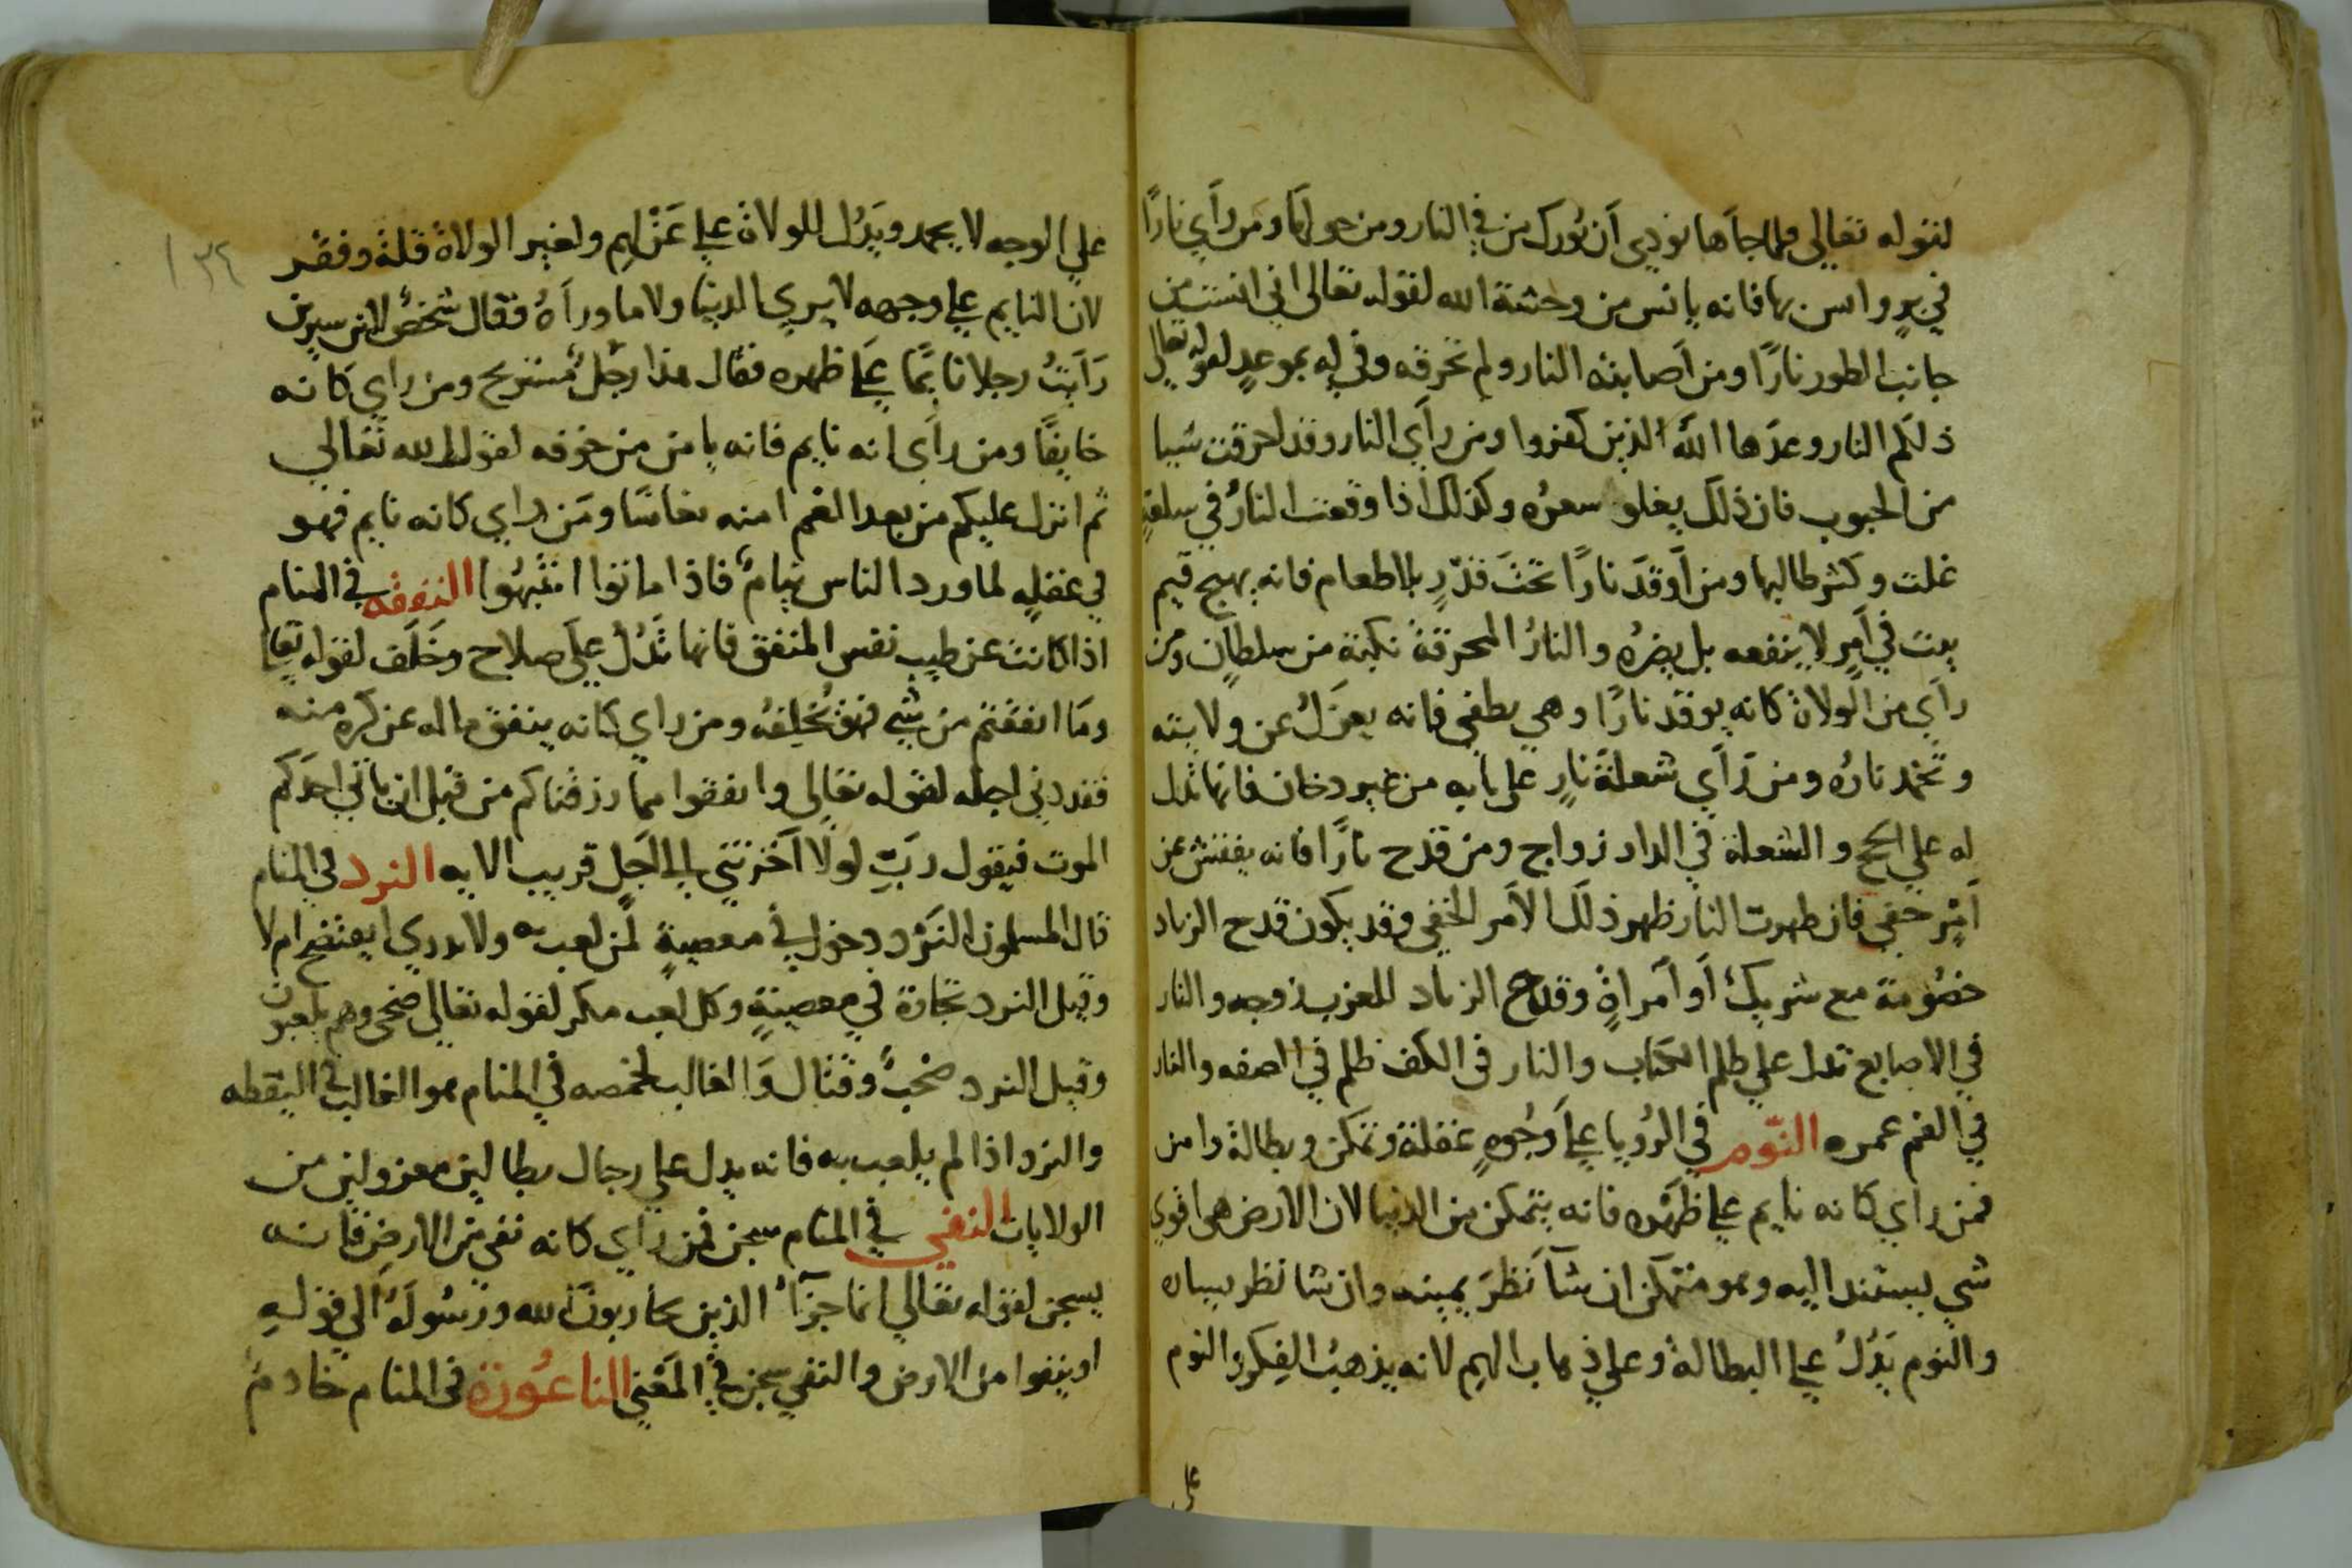 لقوله تعالى فلما جاها نودي أن بورك من في النار ومن حولها ومن رأي نارًا
في برٍ وانس بها فانه يانس من وحشة الله لقوله تعالى اني انست من
جانب الطور نارًا ومن أصابته النار ولم تحرقه وفي له بموعدٍ لقوله تعالي
ذلكم النار وعدها الله الذين كفروا ومن رأي النار وقد احرقت شيا
من الحبوب فان ذلك يغلو سعره وكذلك اذا وقعت النار في سلعةٍ
غلت وكثر طالبها ومن أوقد نارًا تحت قدرٍ بلا طعام فانه يهيج قيم
بيت في أمرٍ لا ينفعه بل يضره والنار المحرقة نكبة من سلطان ومن
رأي من الولاة كانه يوقد نارًا وهي تطفي فانه يعزل عن ولايته
وتخمد ناره ومن رأي شعلة نارٍ على بابه من غير دخان فانها تدل
له علي الحج والشعلة في الدار زواج ومن قدح نارًا فانه يفتش عن
أمرٍ خفي فان ظهرت النار ظهر ذلك الأمر الخفي وقد يكون قدح الزناد
خصومة مع شريك أو أمراةٍ وقدح الزناد للعزب زوجه والنار
في الاصابع تدل علي ظلم الكتاب والنار في الكف ظلم في الصفه والنار
في الفم عمره النوم في الرؤيا علي وجوهٍ غفلة وتمكن وبطالة وامن
فمن رأي كانه نايم علي ظهره فانه يتمكن من الدنيا لان الارض هي اقوي
شي يستند اليه وهو متمكن ان شآ نظر يمينه وان شا نظر يساره
والنوم يدل علي البطالة وعلي ذهاب الهم لانه يذهب الفكر والنوم
علي
١٣٤
علي الوجه لا يحمد ويدل للولاة علي عزلهم ولغير الولاة قلة وفقر
لان النايم علي وجهه لا يري الدنيا ولا ما ورآه فقال شخص لابن سيرين
رأيت رجلا نايمًا علي ظهره فقال هذا رجل مستريح ومن رأي كانه
خايفًا ومن رأي انه نايم فانه يامن من خوفه لقول الله تعالي
ثم انزل عليكم من بعد الغم امنه نعاسًا ومن رأي كانه نايم فهو
في غفلهٍ لما ورد الناس نيام فاذا ماتوا انتبهوا النفقه في المنام
اذا كانت عن طيب نفس المنفق فانها تدل علي صلاح وخلف لقوله تعا
وما انفقتم من شي فهو يخلفه ومن رأي كانه ينفق ماله عن كره منه
فقد دني اجله لقوله تعالى وانفقوا مما رزقناكم من قبل ان ياتي احدكم
الموت فيقول رب لولا أخرتني إلى أجل قريب الايه النرد في المنام
قال المسلمون النرد دخول في معصيةٍ لمن لعب به ولا يدري ايفتضح ام لا
وقيل النرد تجارة في معصيةٍ وكل لعب مكر لقوله تعالي ضحى وهم يلعبون
وقيل النرد صخب وقتال والغالب لخصمه في المنام هو الغالب في اليقظه
والنرد اذا لم يلعب به فانه يدل علي رجال بطالين معزولين من
الولايات النفي في المنام سجن فمن رأي كانه نفي من الارض فانه
يسجن لقوله تعالي انما جزآ الذين يحاربون الله ورسوله الي قوله
او ينفوا من الارض والنفي سجن في المعني الناعورة في المنام خادم